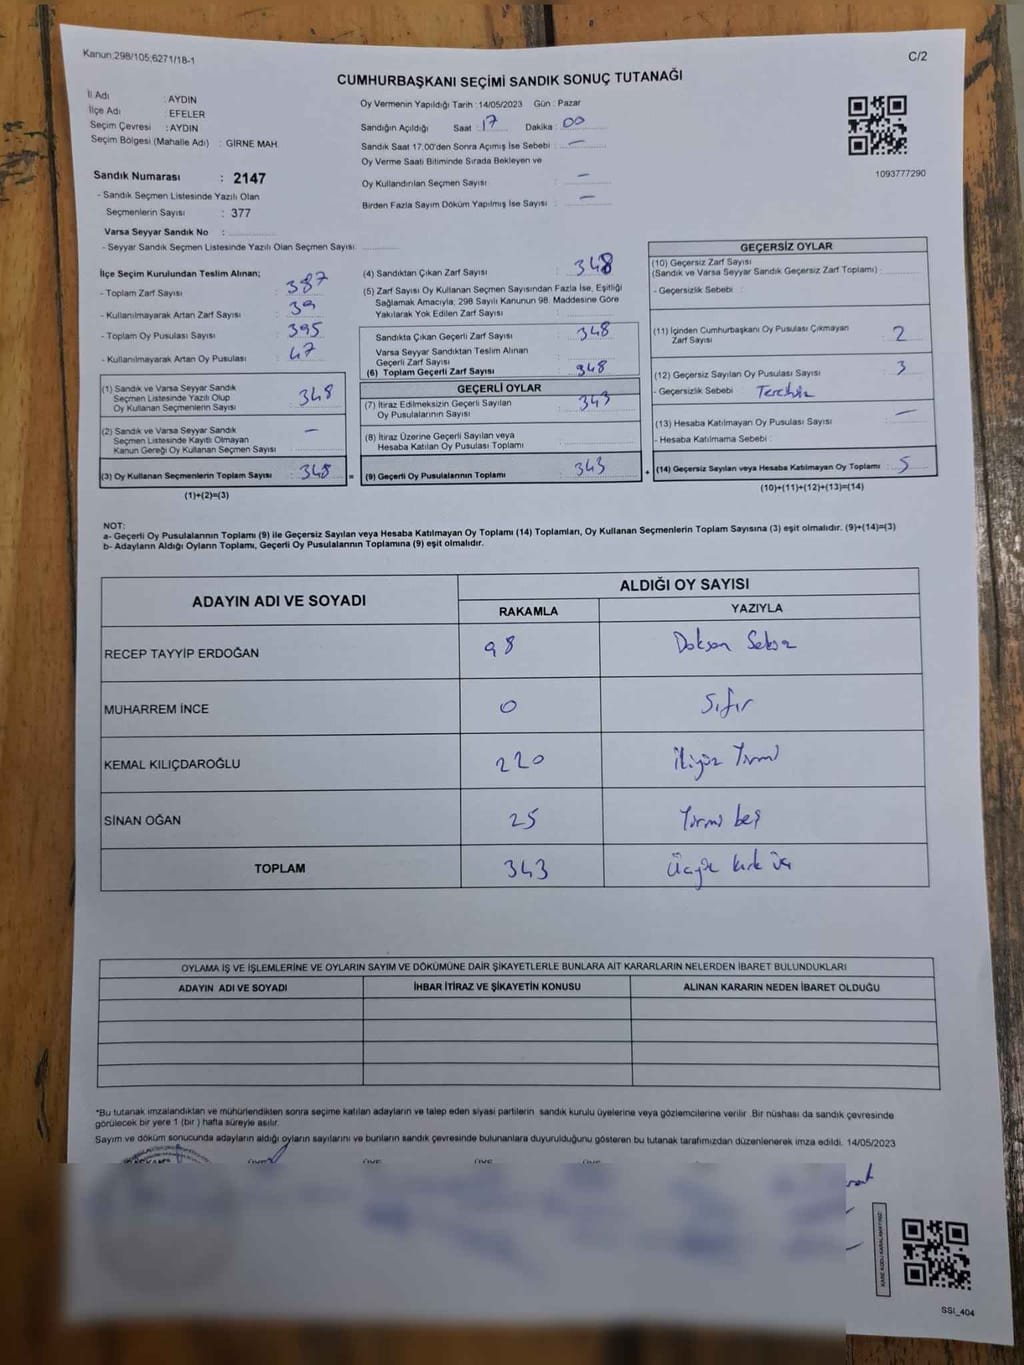 Kanun;298/105;6271/18-1
C/2
CUMHURBAŞKANI SEÇİMİ SANDIK SONUÇ TUTANAĞI
İl Adı : AYDIN
İlçe Adı : EFELER
Seçim Çevresi : AYDIN
Seçim Bölgesi (Mahalle Adı) : GİRNE MAH.
Sandık Numarası : 2147
- Sandık Seçmen Listesinde Yazılı Olan
Seçmenlerin Sayısı : 377
Varsa Seyyar Sandık No :
- Seyyar Sandık Seçmen Listesinde Yazılı Olan Seçmen Sayısı:
Oy Vermenin Yapıldığı Tarih : 14/05/2023 Gün : Pazar
Sandığın Açıldığı Saat : 17 Dakika : 00
Sandık Saat 17.00'den Sonra Açılmış İse Sebebi : —
Oy Verme Saati Bitiminde Sırada Bekleyen ve
Oy Kullandırılan Seçmen Sayısı : —
Birden Fazla Sayım Döküm Yapılmış İse Sayısı : —
1093777290
İlçe Seçim Kurulundan Teslim Alınan;
- Toplam Zarf Sayısı : 387
- Kullanılmayarak Artan Zarf Sayısı : 39
- Toplam Oy Pusulası Sayısı : 395
- Kullanılmayarak Artan Oy Pusulası : 47
(1) Sandık ve Varsa Seyyar Sandık
Seçmen Listesinde Yazılı Olup
Oy Kullanan Seçmenlerin Sayısı : 348
(2) Sandık ve Varsa Seyyar Sandık
Seçmen Listesinde Kayıtlı Olmayan
Kanun Gereği Oy Kullanan Seçmen Sayısı : —
(3) Oy Kullanan Seçmenlerin Toplam Sayısı : 348
(1)+(2)=(3)
(4) Sandıktan Çıkan Zarf Sayısı : 348
(5) Zarf Sayısı Oy Kullanan Seçmen Sayısından Fazla İse, Eşitliği
Sağlamak Amacıyla, 298 Sayılı Kanunun 98. Maddesine Göre
Yakılarak Yok Edilen Zarf Sayısı :
Sandıkta Çıkan Geçerli Zarf Sayısı : 348
Varsa Seyyar Sandıktan Teslim Alınan
Geçerli Zarf Sayısı :
(6) Toplam Geçerli Zarf Sayısı : 348
GEÇERLİ OYLAR
(7) İtiraz Edilmeksizin Geçerli Sayılan
Oy Pusulalarının Sayısı : 343
(8) İtiraz Üzerine Geçerli Sayılan veya
Hesaba Katılan Oy Pusulası Toplamı :
= (9) Geçerli Oy Pusulalarının Toplamı : 343
GEÇERSİZ OYLAR
(10) Geçersiz Zarf Sayısı
(Sandık ve Varsa Seyyar Sandık Geçersiz Zarf Toplamı) :
- Geçersizlik Sebebi :
(11) İçinden Cumhurbaşkanı Oy Pusulası Çıkmayan
Zarf Sayısı : 2
(12) Geçersiz Sayılan Oy Pusulası Sayısı : 3
- Geçersizlik Sebebi :
(13) Hesaba Katılmayan Oy Pusulası Sayısı : —
- Hesaba Katılmama Sebebi :
+ (14) Geçersiz Sayılan veya Hesaba Katılmayan Oy Toplamı : 5
(10)+(11)+(12)+(13)=(14)
NOT:
a- Geçerli Oy Pusulalarının Toplamı (9) ile Geçersiz Sayılan veya Hesaba Katılmayan Oy Toplamı (14) Toplamları, Oy Kullanan Seçmenlerin Toplam Sayısına (3) eşit olmalıdır. (9)+(14)=(3)
b- Adayların Aldığı Oyların Toplamı, Geçerli Oy Pusulalarının Toplamına (9) eşit olmalıdır.
ADAYIN ADI VE SOYADI
ALDIĞI OY SAYISI
RAKAMLA YAZIYLA
RECEP TAYYİP ERDOĞAN 98 Doksan Sekiz
MUHARREM İNCE 0 Sıfır
KEMAL KILIÇDAROĞLU 220 İkiyüz Yirmi
SİNAN OĞAN 25 Yirmi beş
TOPLAM 343 Üçyüz kırk üç
OYLAMA İŞ VE İŞLEMLERİNE VE OYLARIN SAYIM VE DÖKÜMÜNE DAİR ŞİKAYETLERLE BUNLARA AİT KARARLARIN NELERDEN İBARET BULUNDUKLARI
ADAYIN ADI VE SOYADI İHBAR İTİRAZ VE ŞİKAYETİN KONUSU ALINAN KARARIN NEDEN İBARET OLDUĞU
*Bu tutanak imzalandıktan ve mühürlendikten sonra seçime katılan adayların ve talep eden siyasi partilerin sandık kurulu üyelerine veya gözlemcilerine verilir .Bir nüshası da sandık çevresinde
görülecek bir yere 1 (bir ) hafta süreyle asılır.
Sayım ve döküm sonucunda adayların aldığı oyların sayılarını ve bunların sandık çevresinde bulunanlara duyurulduğunu gösteren bu tutanak tarafımızdan düzenlenerek imza edildi. 14/05/2023
SSI_404